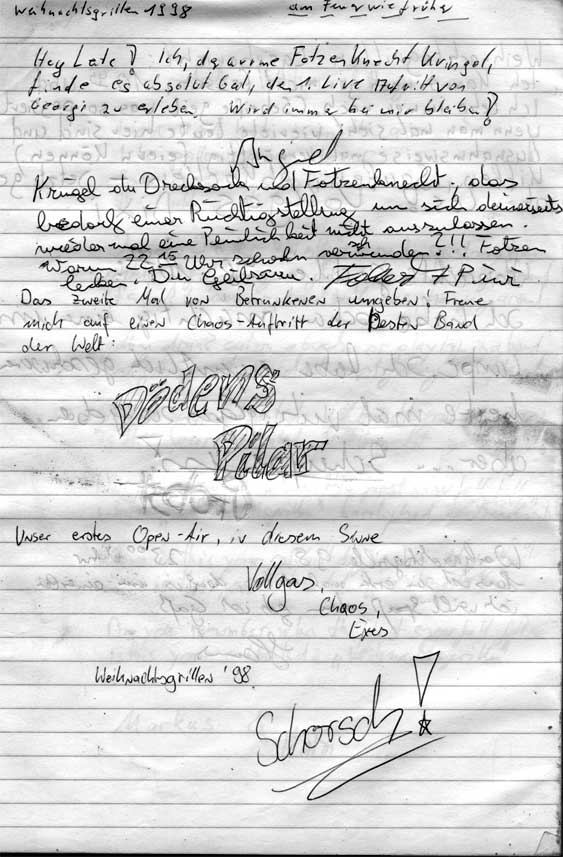 Weihnachtsgrillen 1998 am Feuer wie früher
Hey Late! Ich, der arme Fotzenknecht Kringel,
finde es absolut Gail, den 1. Live Auftritt von
Georgi zu erleben. Wird immer bei mir bleiben!
Krügel du Drecksack und Fotzenknecht, das
bedarf einer Richtigstellung um sich deinerseits
wieder mal eine Peinlichkeit nicht auszulassen.
Warum 22 15 Uhr schon verschwinden?!! Fotzen
lecken.
Das zweite Mal von Betrunkenen umgeben! Freue
mich auf einen Chaos-Auftritt der Besten Band
der Welt:
Dödens
Pilar
Unser erstes Open-Air, in diesem Sinne
Vollgas,
Chaos,
Exes
Weihnachtsgrillen '98
Schorsch!